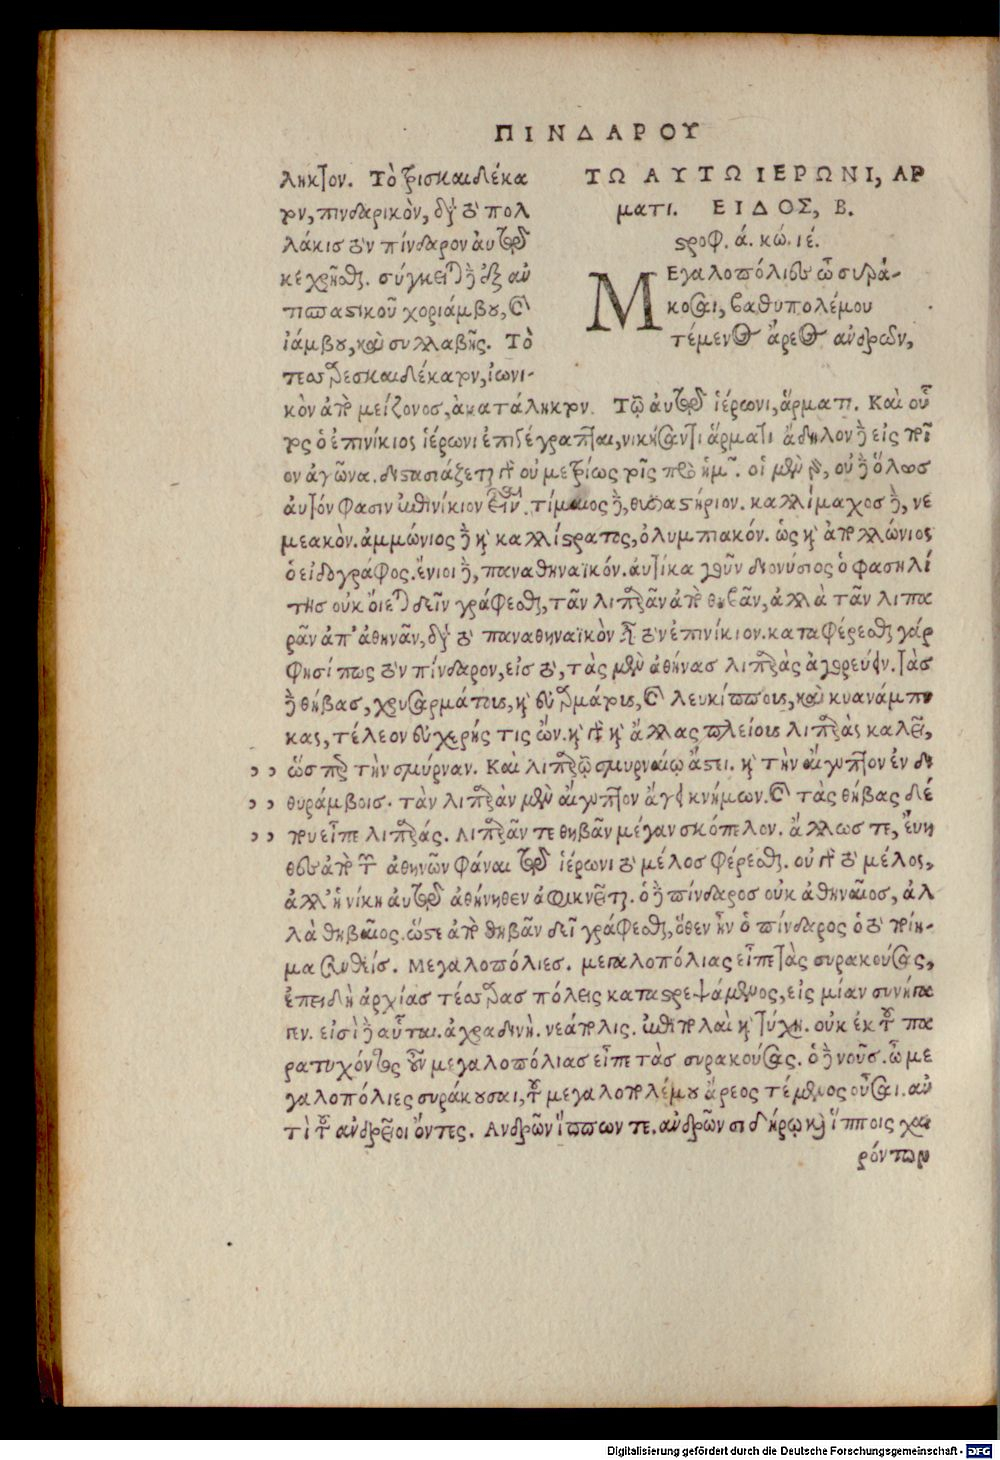 ΠΙΝΔΑΡΟΥ
ληκτον. Τὸ τρισκαιδέκα
τον, πινδαρικὸν, διὰ τὸ πολ
λάκις τὸν πίνδαρον αὐτῷ
κεχρῆσθαι. σύγκειται δὲ ἐξ ἀν
τισπαστικοῦ χοριάμβου, καὶ
ἰάμβου, καὶ συλλαβῆς. Τὸ
τεσσαρεσκαιδέκατον, ἰωνι-
κὸν ἀπὸ μείζονος, ἀκατάληκτον.
ΤΩ ΑΥΤΩ ΙΕΡΩΝΙ, ΑΡ
ματι. ΕΙΔΟΣ, Β.
στροφ. ά. κώ. ιέ.
ΜΕγαλοπόλιες ὦ συρά-
κοσαι, βαθυπολέμου
τέμενος ἄρεος ἀνδρῶν,
Τῷ αὐτῷ ἱέρωνι, ἅρματι. Καὶ οὗ
τος ὁ ἐπινίκιος ἱέρωνι ἐπιγέγραπται, νικήσαντι ἅρματι ἄδηλον δὲ εἰς ποῖ
ον ἀγῶνα. διστασιάζεται γὰρ οὐ μετρίως τοῖς πρὸ ἡμῶν. οἱ μὲν γὰρ, οὐδὲ ὅλως
αὐτόν φασιν ἐπινίκιον εἶναι. τίμαιος δὲ, θυσιαστήριον. καλλίμαχος δὲ, νε
μεακὸν. ἀμμώνιος δὲ καὶ καλλίστρατος, ὀλυμπιακόν. ὡς καὶ ἀπολλώνιος
ὁ εἰδογράφος. ἔνιοι δὲ, παναθηναϊκόν. αὐτίκα γοῦν διονύσιος ὁ φασηλί
της οὐκ οἴεται δεῖν γράφεσθαι, τᾶν λιπαρᾶν ἀπὸ θηβᾶν, ἀλλὰ τᾶν λιπα
ρᾶν ἀπ' ἀθηνᾶν, διὰ τὸ παναθηναϊκὸν εἶναι τὸν ἐπινίκιον. καταφέρεσθαι γάρ
φησί πως τὸν πίνδαρον, εἰς τὸ, τὰς μὲν ἀθήνας λιπαρὰς ἀγορεύειν. τὰς
δὲ θήβας, χρυσαρμάτους, καὶ εὐαρμάτους, καὶ λευκίππους, καὶ κυανάμπυ
κας, τέλεον εὐχερής τις ὤν. καὶ γὰρ καὶ ἄλλας πλείους λιπαρὰς καλεῖ,
ὥσπερ τὴν σμύρναν. Καὶ λιπαρῷ σμυρναίῳ ἄστει. καὶ τὴν αἴγυπτον ἐν δι
θυράμβοις. τὰν λιπαρὰν μὲν αἴγυπτον ἀγχικρήμνων. καὶ τὰς θήβας δέ
που εἶπε λιπαράς. Λιπαρᾶν τε θηβᾶν μέγαν σκόπελον. ἄλλως τε, εὔη
θες ἀπὸ τῶν ἀθηνῶν φάναι τῷ ἱέρωνι τὸ μέλος φέρεσθαι. οὐ γὰρ τὸ μέλος,
ἀλλ' ἡ νίκη αὐτῷ ἀθήνηθεν ἀφικνεῖται. ὁ δὲ πίνδαρος οὐκ ἀθηναῖος, ἀλ
λὰ θηβαῖος. ὥστε ἀπὸ θηβᾶν δεῖ γράφεσθαι, ὅθεν ἦν ὁ πίνδαρος ὁ τὸ ποίη-
μα συνθείς. Μεγαλοπόλιες. μεγαλοπόλιας εἶπε τὰς συρακούσας,
ἐπειδὴ ἀρχίας τέσσαρας πόλεις καταστρεψάμενος, εἰς μίαν συνήγα
γεν. εἰσὶ δὲ αὗται. ἀχραδινὴ. νεάπολις. ἐπιπολαὶ καὶ τύχη. οὐκ ἐκ τοῦ πα
ρατυχόντος οὖν μεγαλοπόλιας εἶπε τὰς συρακούσας. ὁ δὲ νοῦς. ὦ με
γαλοπόλιες συράκουσαι, τοῦ μεγαλοπολέμου ἄρεος τέμενος οὖσαι. ἀν
τὶ τοῦ ἀνδρεῖοι ὄντες. Ανδρῶν ἵππων τε. ἀνδρῶν σιδήρῳ καὶ ἵπποις χαι
ρόντων
Digitalisierung gefördert durch die Deutsche Forschungsgemeinschaft - DFG